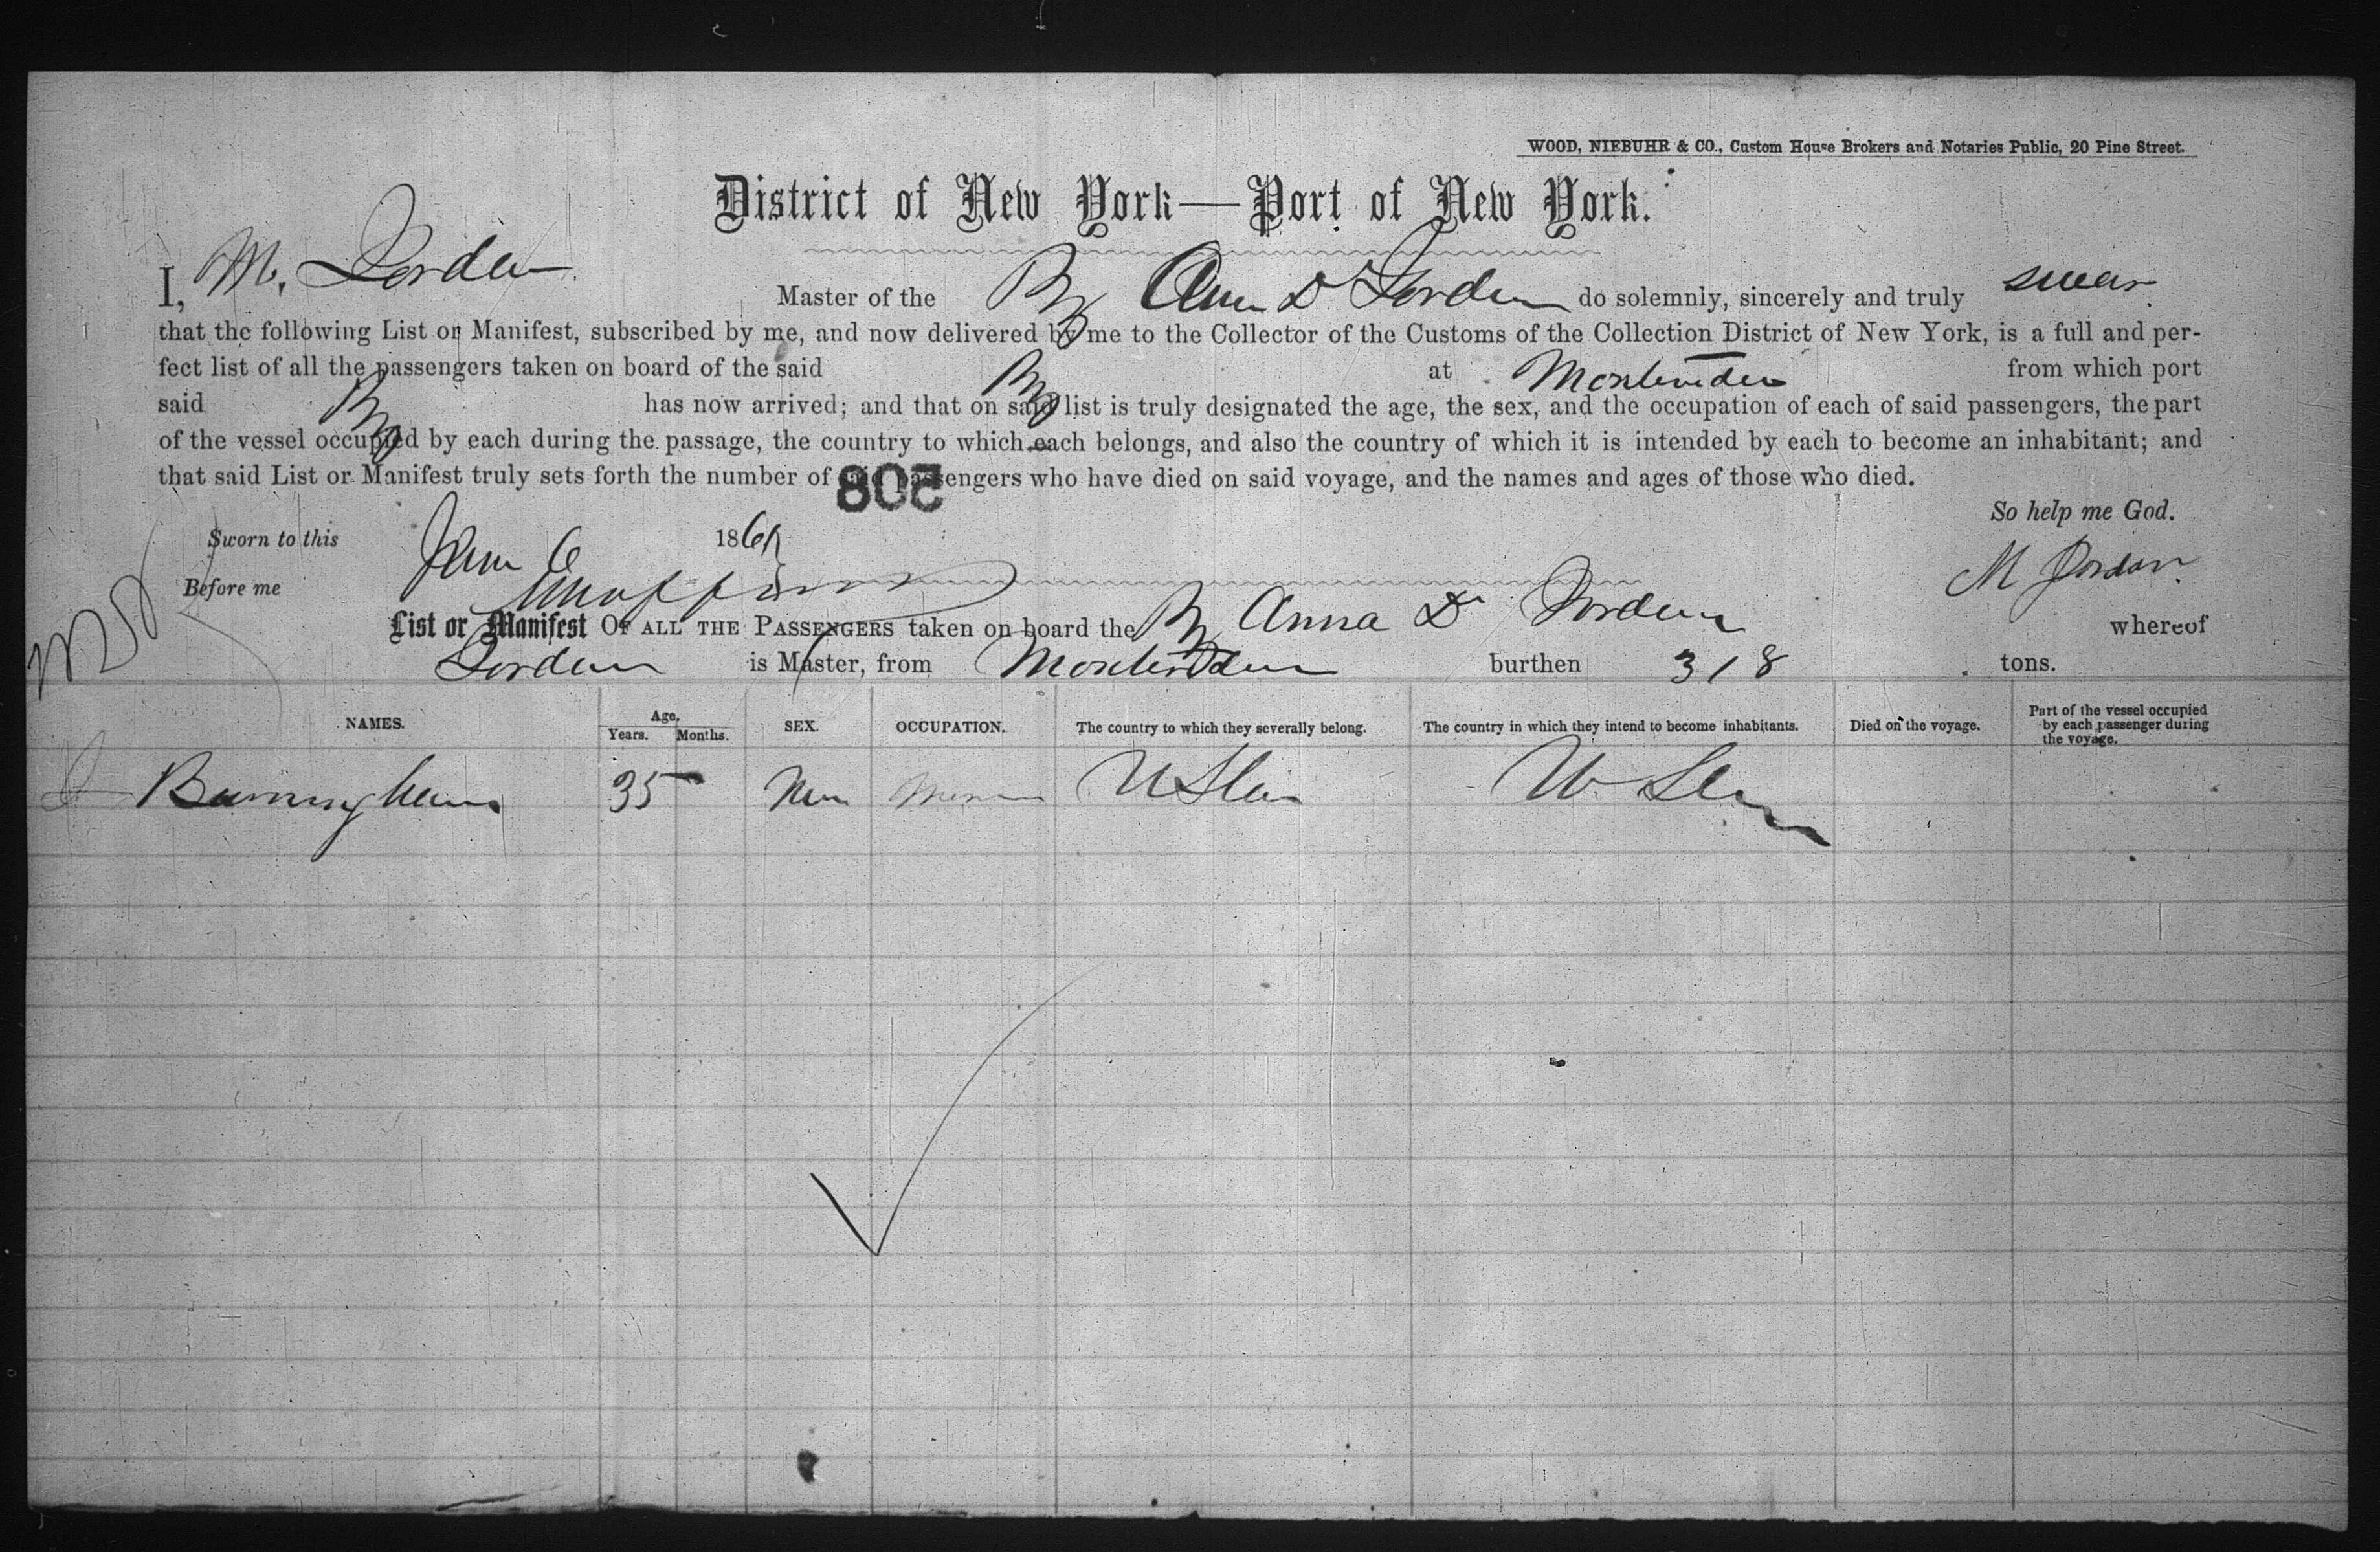 WOOD, NIEBUHR & CO., Custom House Brokers and Notaries Public, 20 Pine Street.
District of New York—Port of New York.
I, M. Jordan Master of the Bg Anna D Jordan do solemnly, sincerely and truly swear
that the following List or Manifest, subscribed by me, and now delivered by me to the Collector of the Customs of the Collection District of New York, is a full and per-
fect list of all the passengers taken on board of the said Bg at Montevideo from which port
said Bg has now arrived; and that on said list is truly designated the age, the sex, and the occupation of each of said passengers, the part
of the vessel occupied by each during the passage, the country to which each belongs, and also the country of which it is intended by each to become an inhabitant; and
that said List or Manifest truly sets forth the number of said passengers who have died on said voyage, and the names and ages of those who died.
508
So help me God.
Sworn to this Jan 6 186
M Jordan
Before me
List or Manifest OF ALL THE PASSENGERS taken on board the Bg Anna D Jordan whereof
Jordan is Master, from Montevideo burthen 318 tons.
NAMES. Age. Years. Months. SEX. OCCUPATION. The country to which they severally belong. The country in which they intend to become inhabitants. Died on the voyage. Part of the vessel occupied by each passenger during the voyage.
35